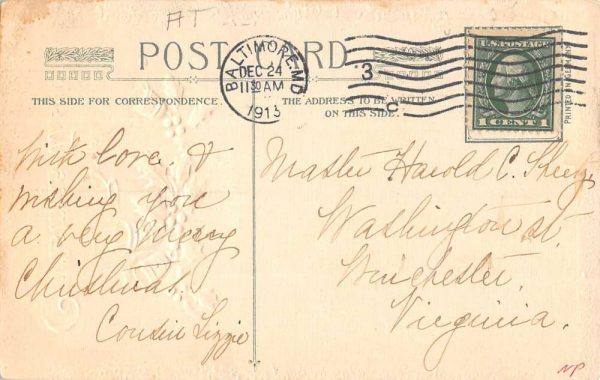 AT
POST CARD
BALTIMORE, MD.
DEC 24
11 30 AM
1913
3
C
U.S. POSTAGE
1 CENT 1
PRINTED IN GERMANY
THIS SIDE FOR CORRESPONDENCE.
THE ADDRESS TO BE WRITTEN
ON THIS SIDE.
With love &
wishing you
a very Merry
Christmas.
Cousin Lizzie
Master Harold C.
Washington st.
Winchester.
Virginia.
NP